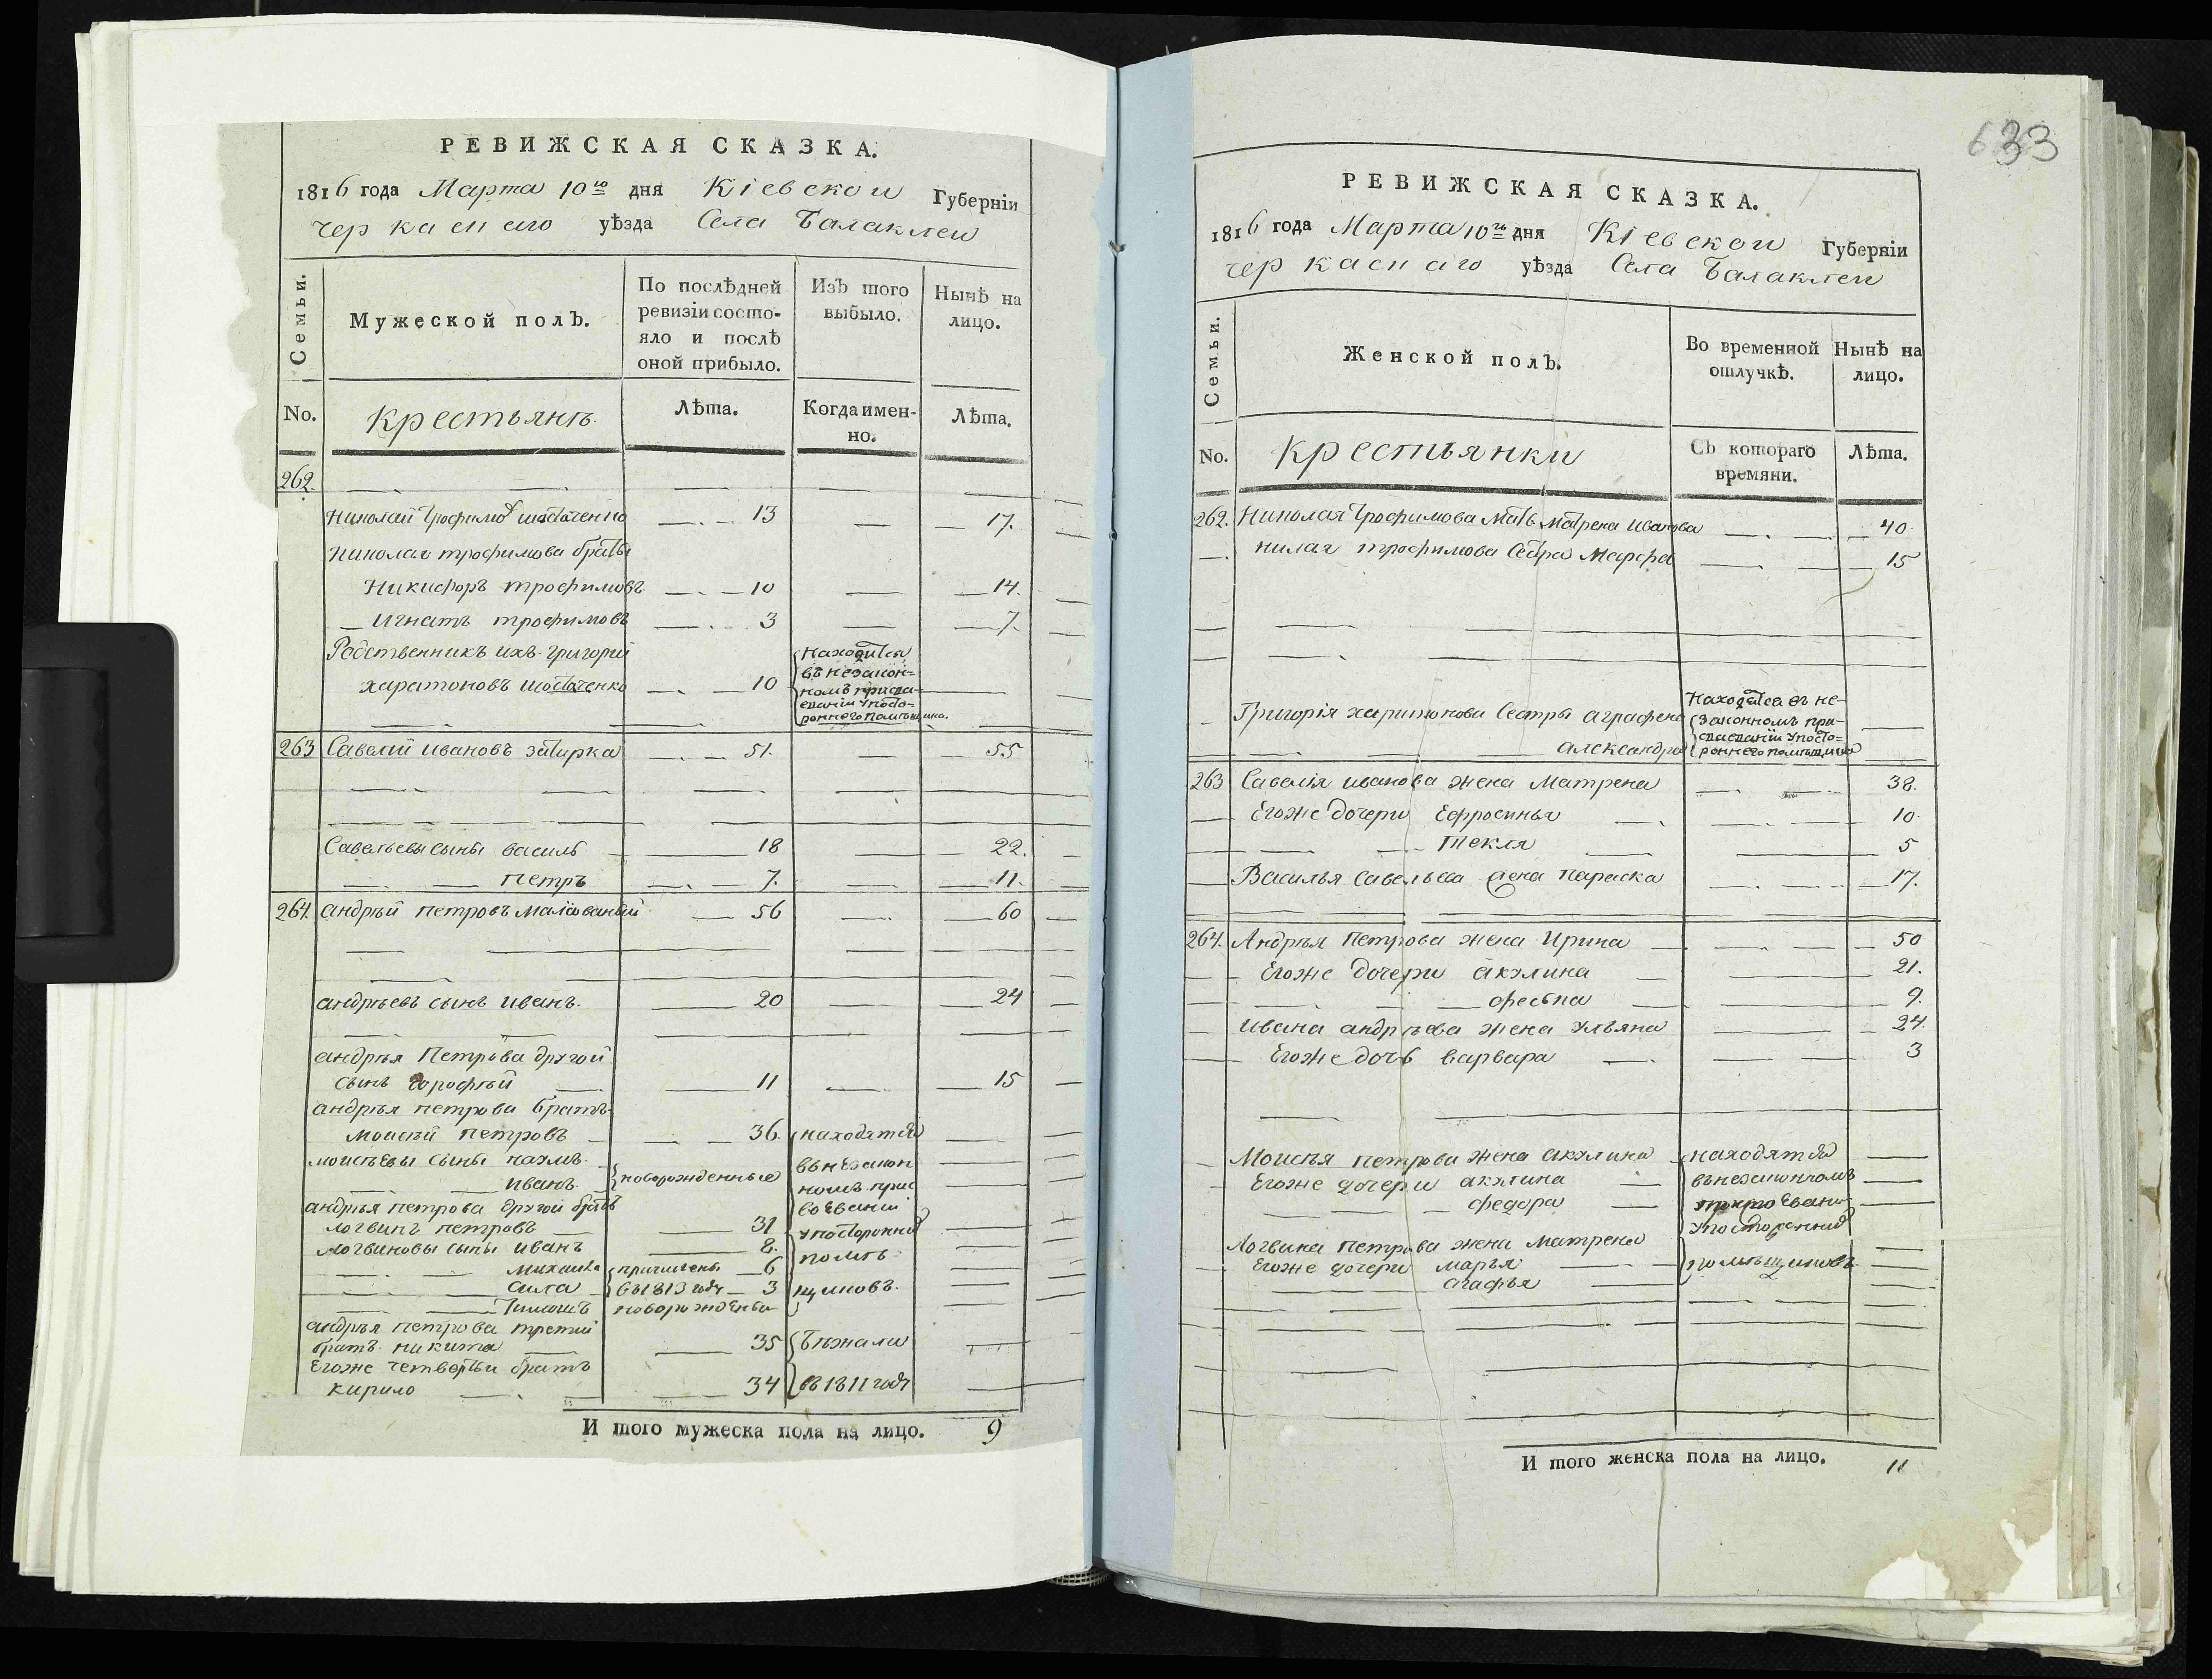 РЕВИЖСКАЯ СКАЗКА.
1816 года Марта 10го дня Кіевской Губерніи
черкаскаго уѣзда Села Балаклеи
Семьи.
Мужеской полъ.
По послѣдней ревизіи состо-
яло и послѣ
оной прибыло.
Изъ того
выбыло.
Нынѣ на
лицо.
No.
крестьянъ
Лѣта.
Когда имен-
но.
Лѣта.
262.
Николай Трофимов 13 17.
Николая трофимова братья
Никифоръ трофимовъ 10 14.
Игнатъ трофимовъ 3 7.
Родственникъ ихъ Григорий
харитоновъ 10
Находится
въ незакон-
номъ присва-
еваніи упосто-
роннего помѣщика.
263 Савелий Ивановъ затирка 51. 55
Савельевы сыны василь 18 22.
петръ 7. 11.
264. андрѣй петровъ Малюваный 56 60
андрѣевъ сынъ иванъ. 20 24
андрѣя Петрова другой
сынъ 11 15
андрѣя петрова братъ
моисѣй петровъ 36. находятся
моисѣевы сыны наумъ.
иванъ. новорожденные
въ незакон
номъ прис
воеваніи
упосторонних
помѣ
щиковъ.
андрѣя петрова другой братъ
логвинъ петровъ 31
логвиновы сыны иванъ 8.
михаила причислены 6
сила въ 1813 году 3
Тимошъ новорожденны
андрѣя петрова третий
братъ никита 35 бѣжали
Егоже четвертый братъ
кирило 34 въ 1811 году
И того мужеска пола на лицо. 9
633
РЕВИЖСКАЯ СКАЗКА.
1816 года Марта 10го дня Кіевской Губерніи
черкаскаго уѣзда Села Балаклеи
Семьи.
Женской полъ.
Во временной
отлучкѣ.
Нынѣ на
лицо.
No.
крестьянки
Съ котораго
времяни.
Лѣта.
262. Николая Трофимова мать матрена иванова 40
николая трофимова сестра Марфа 15
Григорія харитонова Сестры аграфена
александра
Находятся въ не-
законномъ при-
сваеваніи упосто-
роннего помѣщика
263 Савелія иванова жена Матрена 38.
Егоже дочери Ефросинья 10
Текля 5
Василья Савельева жена Параска 17.
264. Андрѣя Петрова жена Ирина 50
Егоже дочери акулина 21.
феська 9.
Ивана андрѣева жена ульяна 24
Егоже дочь варвара 3
Моисѣя петрова жена акулина находятся
Егоже дочери акулина въ незаконномъ
федора
упосторонних
Логвина петрова жена матрена
Егоже дочери марья помѣщиковъ.
агафья
И того женска пола на лицо. 11